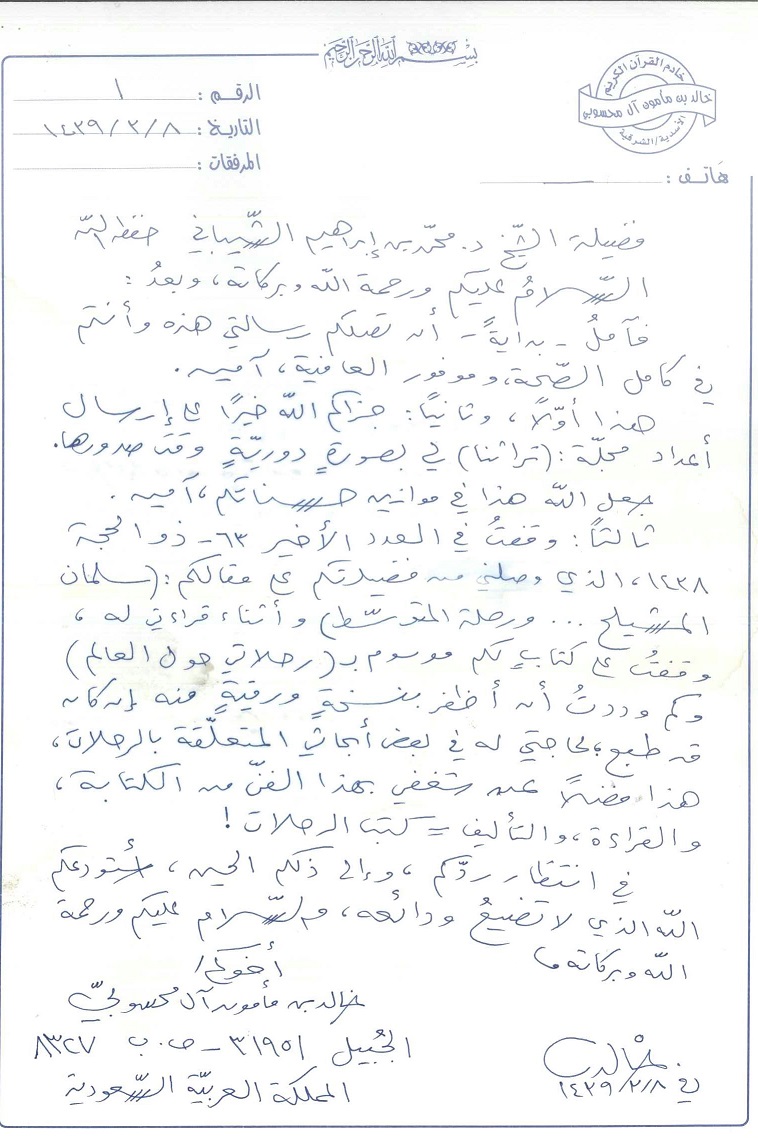 بسم الله الرحمن الرحيم
خادم القرآن الكريم
خالد بن مأمون آل محسوبي
الأندية/الشرقية
الرقم : ١
التاريخ : ١٤٣٩/٢/٨
المرفقات :
هاتف :
فضيلة الشّيخ د. محمّد بن إبراهيم الشّيباني حفظه اللّه
السّلامُ عليكم ورحمة اللّه وبركاته، وبعدُ :
فآملُ - بدايةً - أن تصلكم رسالتي هذه وأنتم
في كامل الصّحة، وموفور العافية، آمين.
هذا أوّلًا، وثانيًا: جزاكم اللّه خيرًا على إرسال
أعداد مجلّة: (تراثنا) لي بصورةٍ دوريّةٍ وقت صدورها.
جعل اللّه هذا في موازين حسناتكم، آمين.
ثالثًا: وقفتُ في العدد الأخير ٦٣ - ذو الحجة
١٤٣٨، الذي وصلني من فضيلتكم على مقالكم: (سلمان
المشيلح ... ورحلة المتوسّط) وأثناء قراءتي له،
وقفتُ على كتابٍ لكم موسوم بـ(رحلاتي حول العالم)
وكم وددتُ أن أظفر بنسخةٍ ورقيّةٍ منه إن كان
قد طبع؛ لحاجتي له في بعض أبحاثي المتعلّقة بالرحلات،
هذا فضلًا عن شغفي بهذا الفنّ من الكتابة،
والقراءة، والتأليف = كتب الرحلات!
في انتظار ردّكم، وإلى ذلكم الحين، أستودعكم
اللّه الذي لا تضيعُ ودائعه، والسّلام عليكم ورحمة
اللّه وبركاته
أخوكم/
خالد بن مأمون آل محسوبيّ
الجُبيل ٣١٩٥١ - ص. ب ٨٣٢٧
المملكة العربيّة السّعودية
خالد
في ١٤٣٩/٢/٨